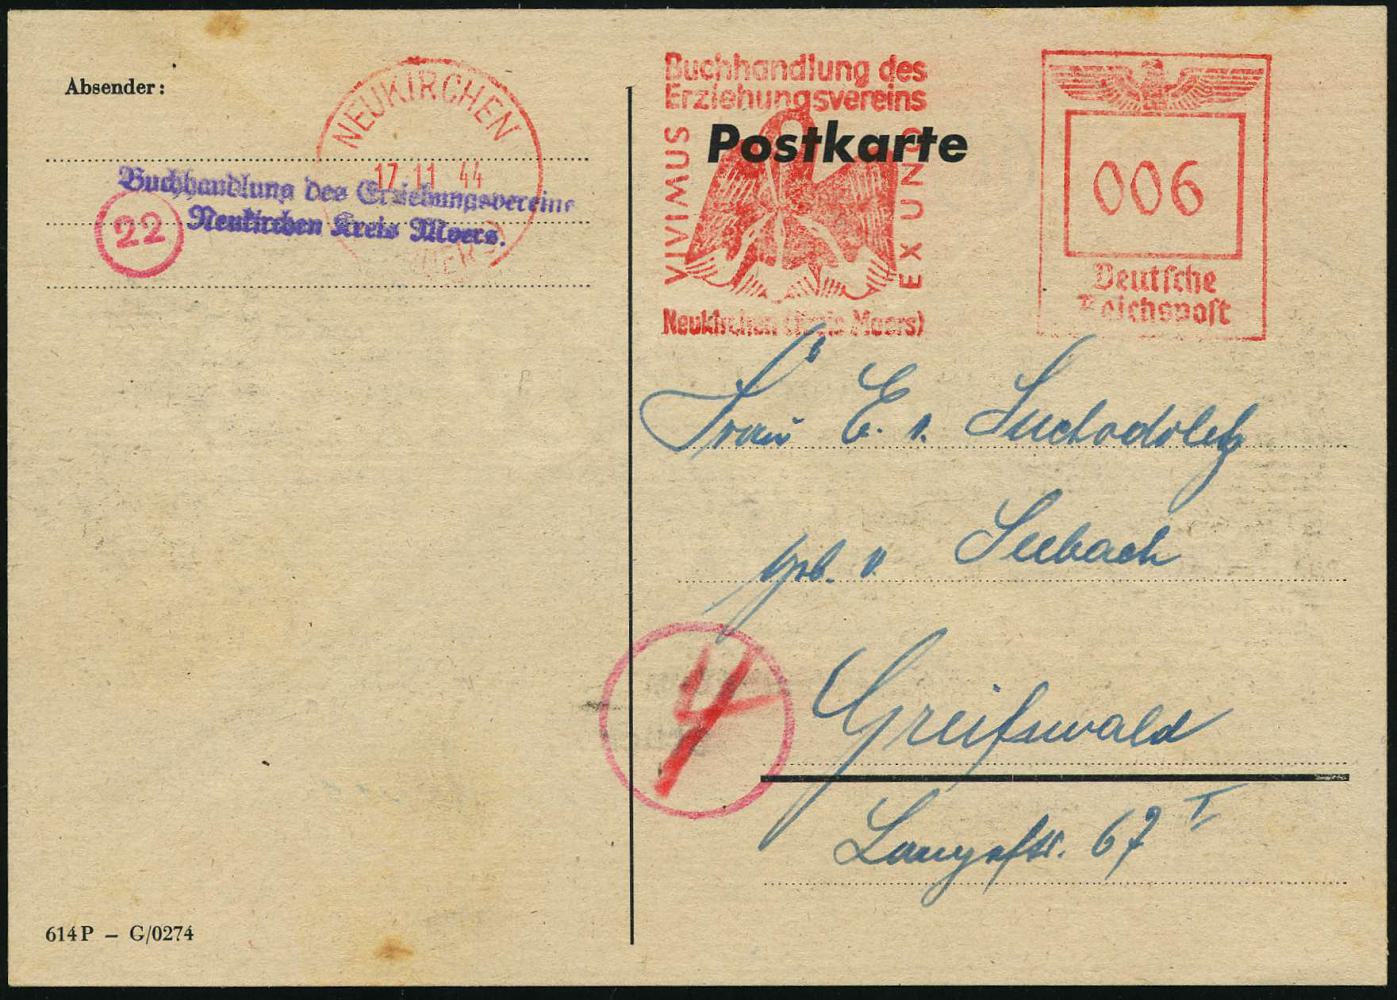 Absender:
NEUKIRCHEN
17.11.44
Buchhandlung des Erziehungsvereins
Neukirchen Kreis Moers.
22
614 P – G/0274
Buchhandlung des
Erziehungsvereins
VIVIMUS
EX UNO
Neukirchen (Kreis Moers)
Postkarte
006
Deutsche
Reichspost
Frau E. v. Suchodoletz
geb. v. Seebach
4
Greifswald
Langestr. 67 I